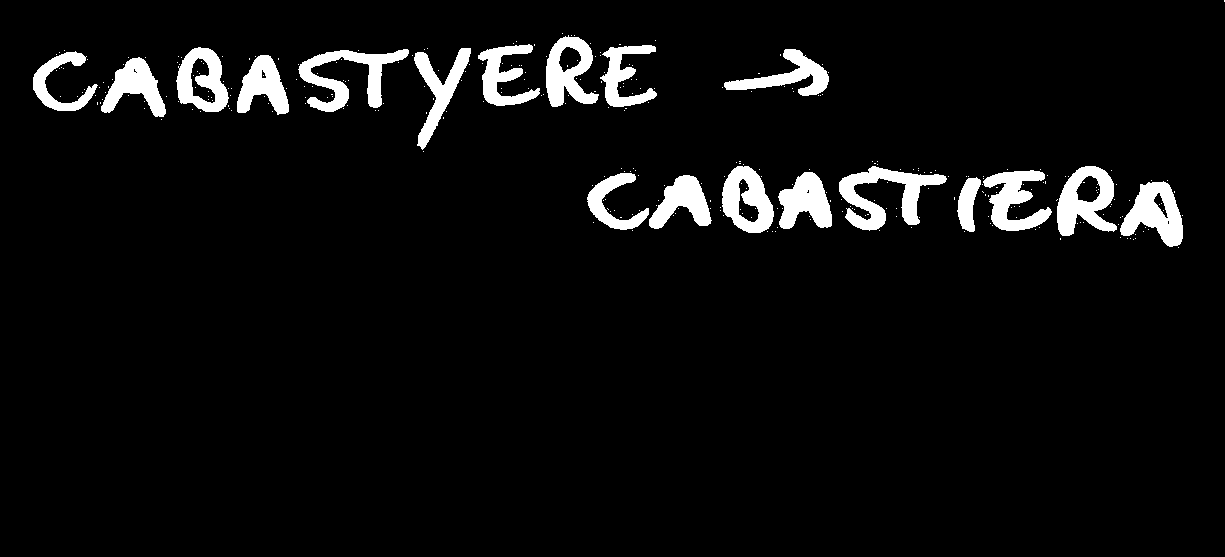 CABASTYERE →
CABASTIERA